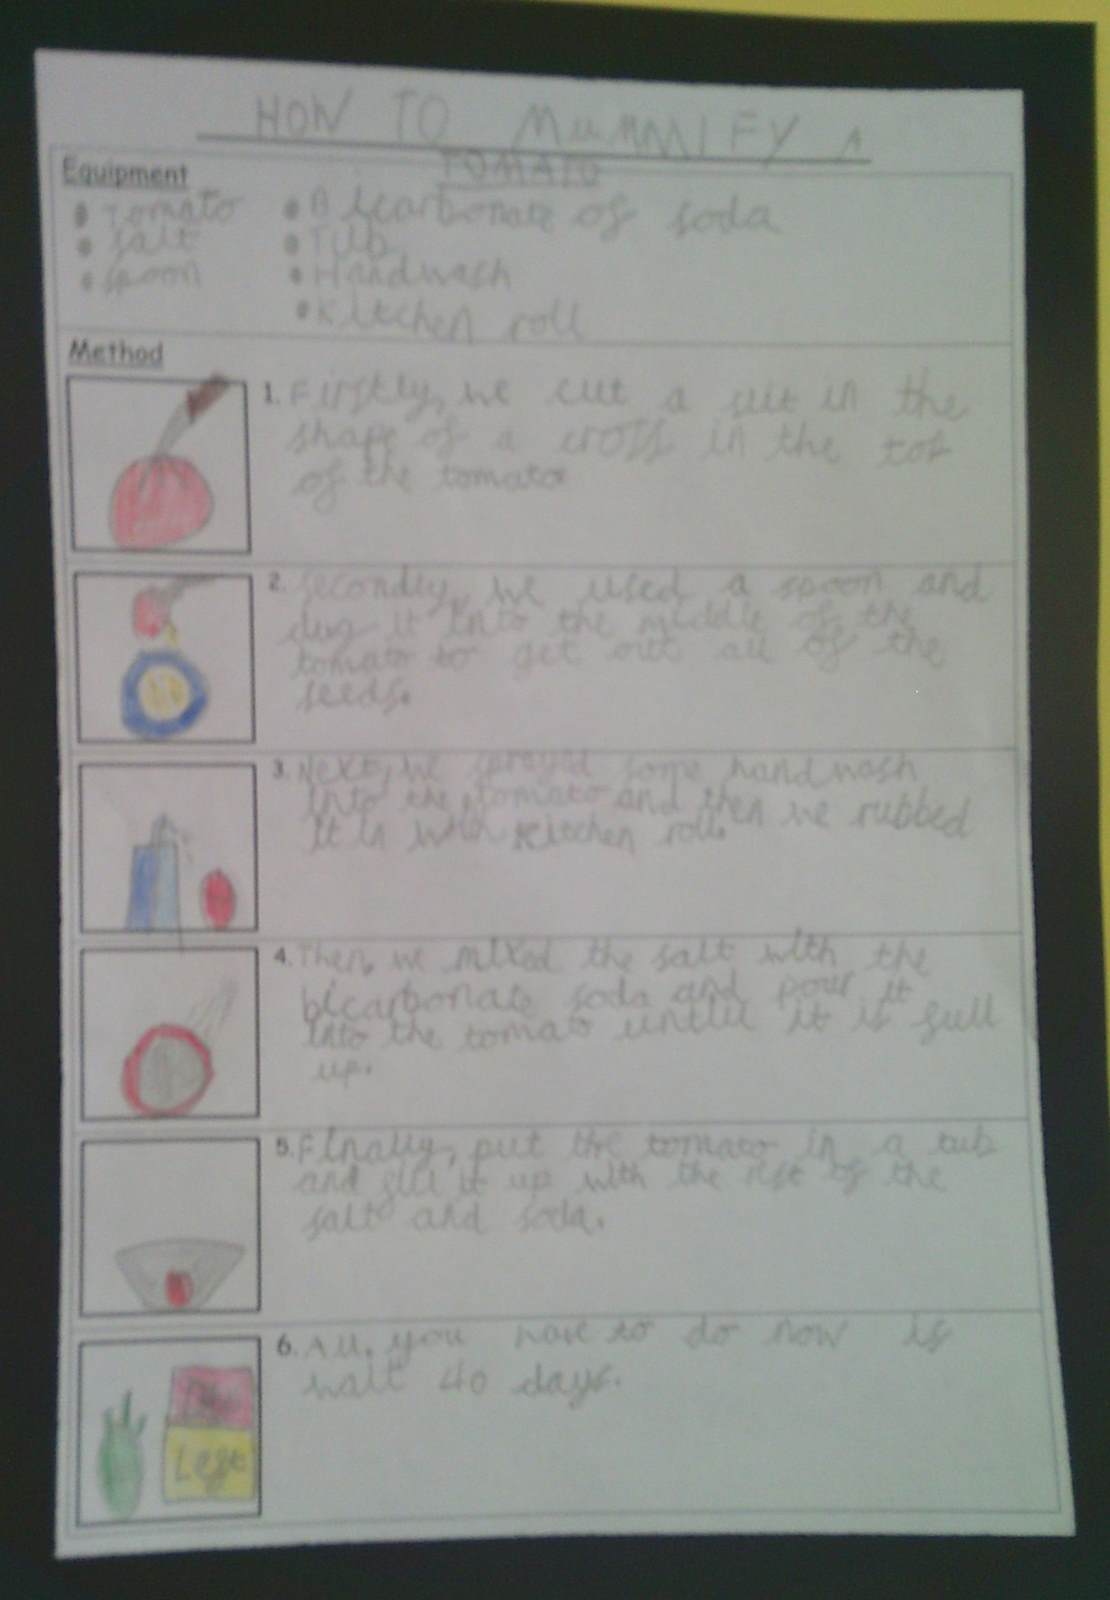 HOW TO MUMMIFY A
TOMATO
Equipment
Tomato
salt
spoon
Bicarbonate of soda
Tub
Handwash
Kitchen roll
Method
1. Firstly, we cut a slit in the
shape of a cross in the top
of the tomato
2. Secondly, we used a spoon and
dug it into the middle of the
tomato to get out all of the
seeds.
3. Next, we sprayed some handwash
into the tomato and then we rubbed
it in with kitchen roll.
4. Then, we mixed the salt with the
bicarbonate soda and pour it
into the tomato until it is full
up.
5. Finally, put the tomato in a tub
and fill it up with the rest of the
salt and soda.
6. All you have to do now is
wait 40 days.
Left